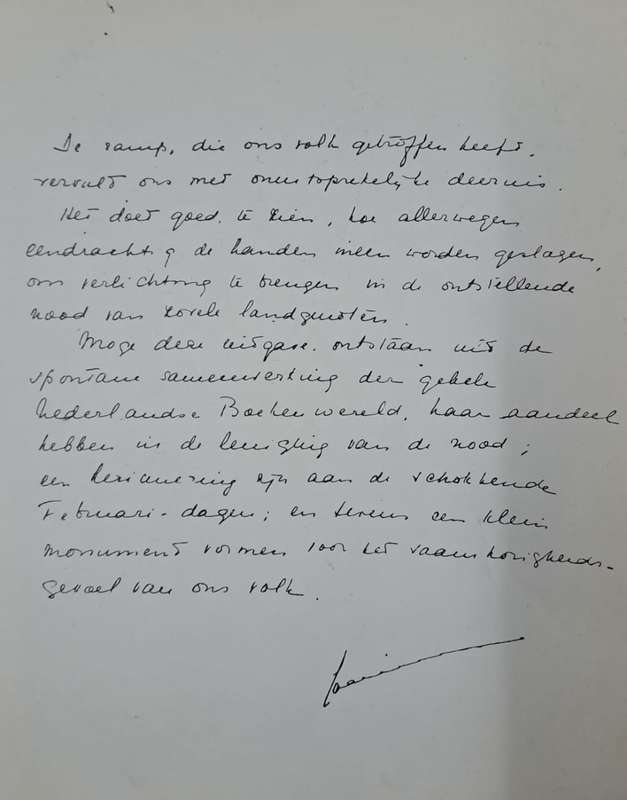 De ramp, die ons volk getroffen heeft,
vervult ons met onuitsprekelijke deernis.
Het doet goed, te zien, hoe allerwegen
eendrachtig de handen ineen worden geslagen,
om verlichting te brengen in de ontstellende
nood van zovele landgenoten.
Moge deze uitgave, ontstaan uit de
spontane samenwerking der gehele
Nederlandse Boekenwereld, haar aandeel
hebben in de leniging van de nood;
een herinnering zijn aan de schokkende
Februari-dagen; en tevens een klein
monument vormen voor het saamhorigheids-
gevoel van ons volk.